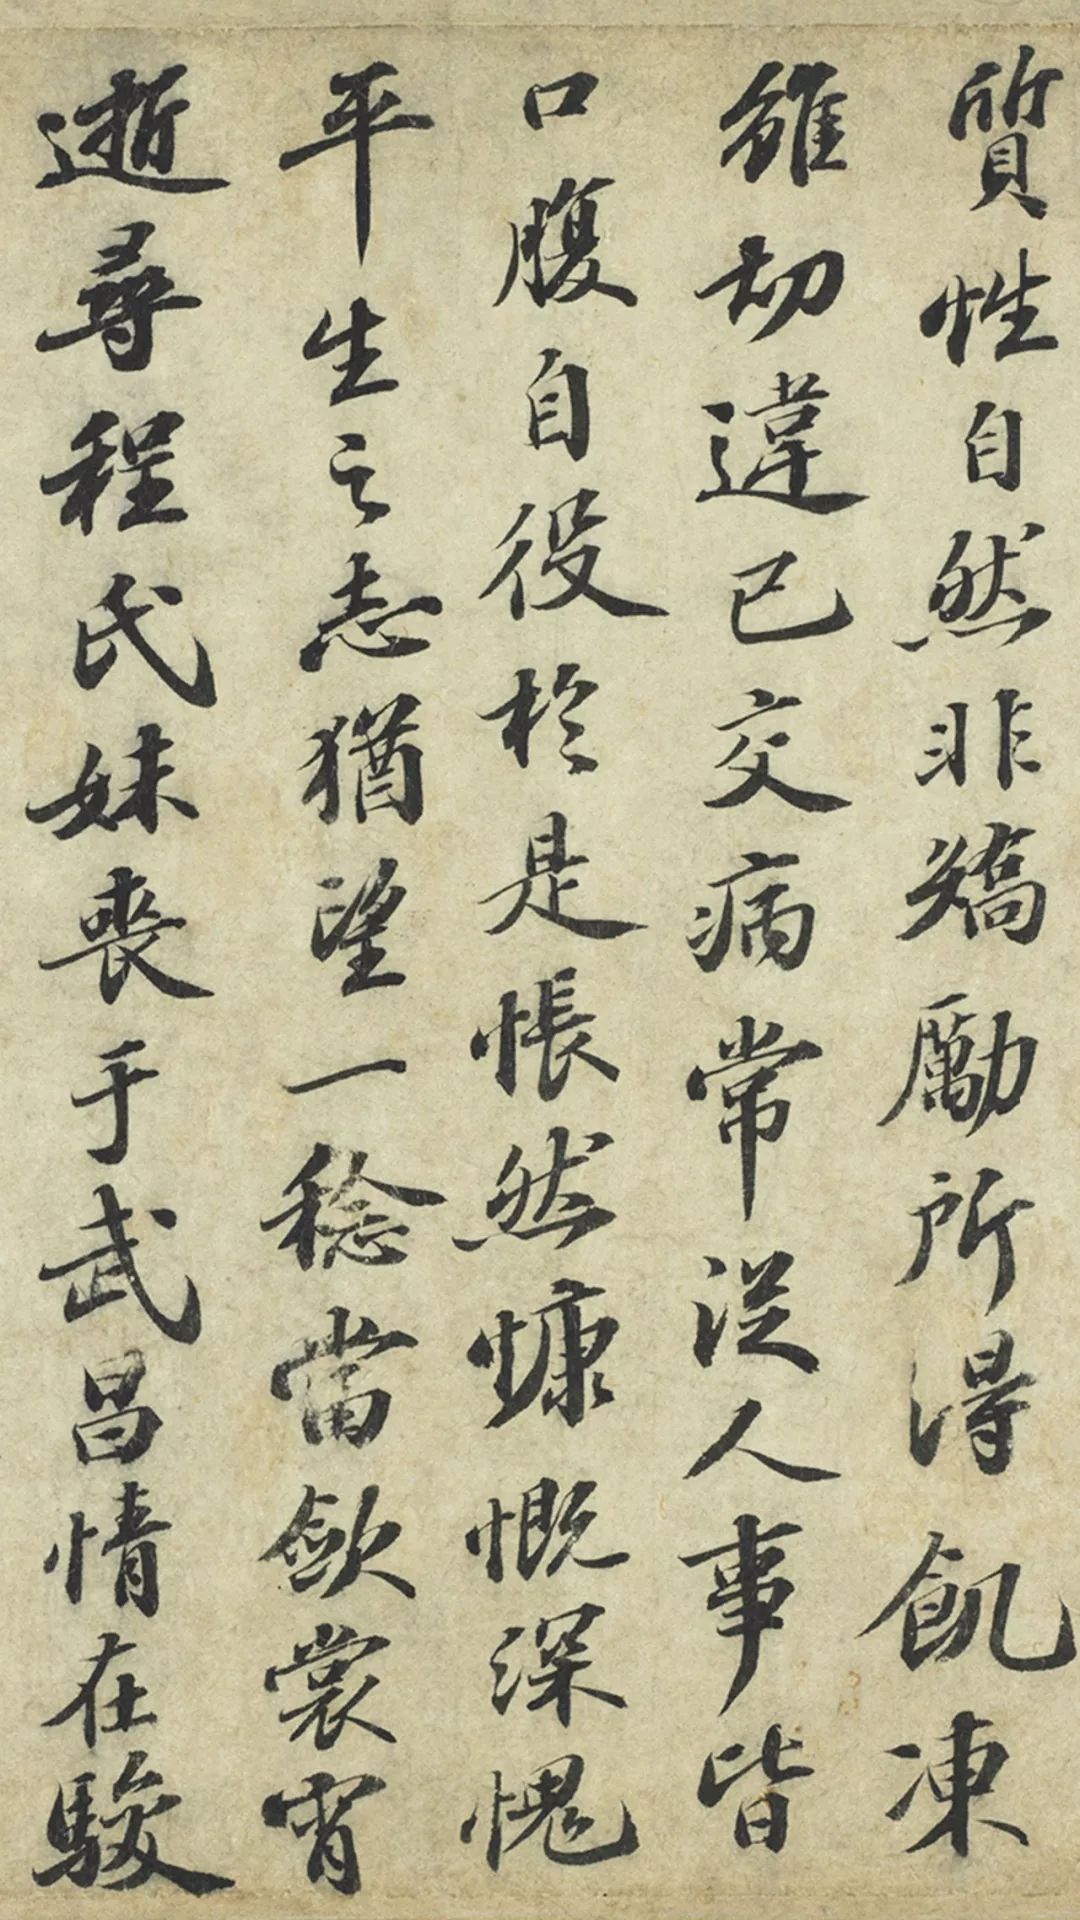 質性自然非矯勵所得飢凍
雖切違已交病常從人事皆
口腹自役於是悵然慷慨深愧
平生之志猶望一稔當斂裳宵
逝尋程氏妹喪于武昌情在駿